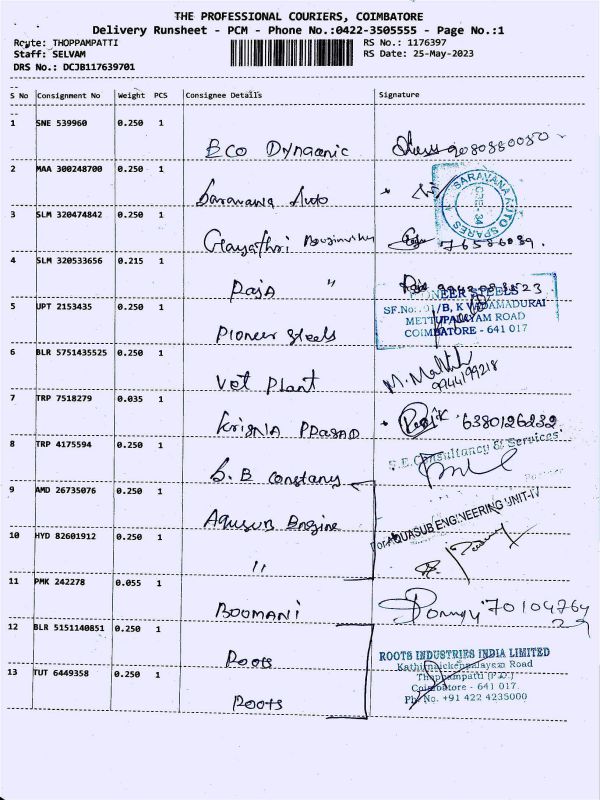 THE PROFESSIONAL COURIERS, COIMBATORE
Delivery Runsheet - PCM - Phone No.:0422-3505555 - Page No.:1
Route: THOPPAMPATTI RS No.: 1176397
Staff: SELVAM RS Date: 25-May-2023
DRS No.: DCJB117639701
S No Consignment No Weight PCS Consignee Details Signature
1 SNE 539960 0.250 1
Eco Dynamic
2 MAA 300248700 0.250 1
Saravana Auto
SARAVANA AUTO SPARES
CBE-34
3 SLM 320474842 0.250 1
Gayathri
4 SLM 320533656 0.215 1
Raja "
PIONEER STEELS
5 UPT 2153435 0.250 1
SF.No: /B, K VADAMADURAI
METTUPALAYAM ROAD
COIMBATORE - 641 017
Pioneer Steels
6 BLR 5751435525 0.250 1
Vet Plant M. 9944199218
7 TRP 7518279 0.035 1
Krisna Prasad 6380126232
8 TRP 4175594 0.250 1
S.E.Consultancy & Services
S.B Constancy
9 AMD 26735076 0.250 1
Aqusub Engine
For AQUASUB ENGINEERING UNIT-IV
10 HYD 82601912 0.250 1
"
11 PMK 242278 0.055 1
BOOMANI
12 BLR 5151140851 0.250 1
Roots
ROOTS INDUSTRIES INDIA LIMITED
Kathirnaickenpalayam Road
Thoppampatti (P.O.)
13 TUT 6449358 0.250 1
Coimbatore - 641 017.
Ph. No. +91 422 4235000
Roots